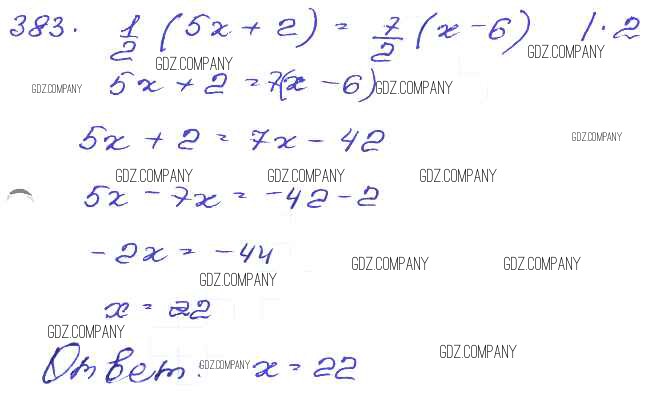 383. 1/2 (5x + 2) = 7/2 (x - 6) | · 2
GDZ.COMPANY GDZ.COMPANY
GDZ.COMPANY 5x + 2 = 7(x - 6) GDZ.COMPANY
5x + 2 = 7x - 42 GDZ.COMPANY
GDZ.COMPANY GDZ.COMPANY GDZ.COMPANY
5x - 7x = -42 - 2
-2x = -44
GDZ.COMPANY GDZ.COMPANY
GDZ.COMPANY
x = 22
GDZ.COMPANY
GDZ.COMPANY
Ответ: GDZ.COMPANY x = 22